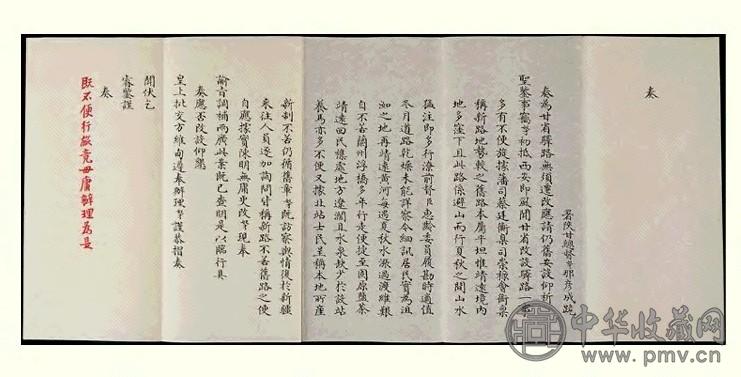 奏
署陝甘總督臣那彥成跪
奏為甘省驛路無須遷改應請仍舊安設仰祈
聖鑒事竊臣初抵西安即風聞甘省改設驛路一事
多有不便旋據藩司蔡廷衡臬司崇祿會銜稟
稱新路地勢較之舊路本屬平坦惟靖遠境內
地多窪下且此路係避山而行夏秋之間山水
猛注即多行潦前督臣惠齡委員履勘時適值
冬月道路乾燥未能詳察今細訊居民實為沮
洳之地再靖遠黃河每遇夏秋水漲過渡維艱
自不若蘭州浮橋多年行走便捷至固原鹽茶
靖遠回民憑處地方遼濶且水泉缺少於設站
養馬亦多不便又據北站士民呈稱本地所產
新芻不若仍循舊章等既訪察輿情復於新疆
來往人員逐加詢問皆稱新路不若舊路之便
自應據實陳明無庸更改等現奉
諭旨調補兩廣此案既已查明是以臨行具
奏應否改設仰懇
皇上批交方維甸遵奉辦理等謹恭摺奏
聞伏乞
睿鑒謹
奏
既不便行故竟毋庸辦理為是
中华收藏网
www.pmv.cn